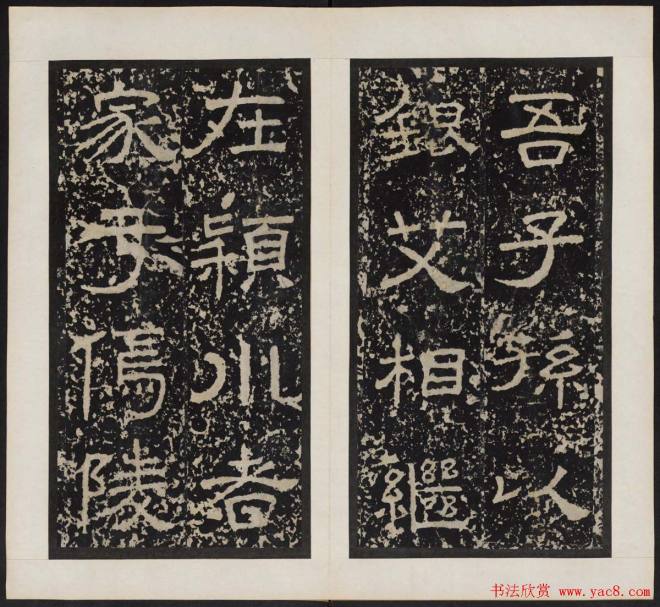 吾子孫以
銀艾相繼
在穎川者
家于傿陵
书法欣赏 www.yac8.com